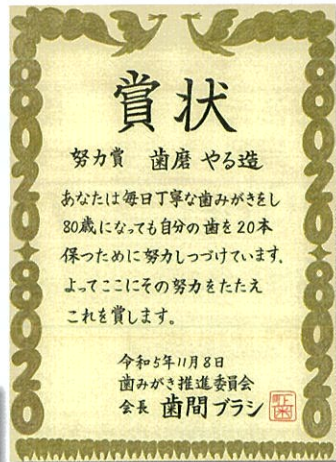 賞状
努力賞 歯磨 やる造
あなたは毎日丁寧な歯みがきをし
80歳になっても自分の歯を20本
保つために努力しつづけています。
よってここにその努力をたたえ
これを賞します。
令和5年11月8日
歯みがき推進委員会
会長 歯間ブラシ
8020
8020
8020
8020